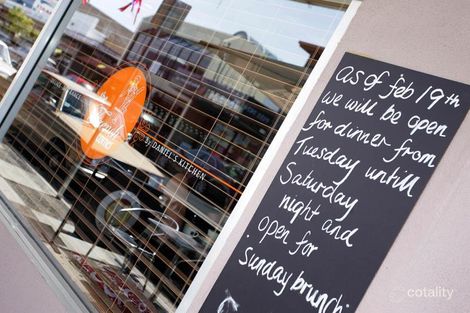 as of feb 19th
we will be open
for dinner from
Tuesday untill
Saturday
night and
open for
Sunday brunch
by DANIEL'S KITCHEN
cotality